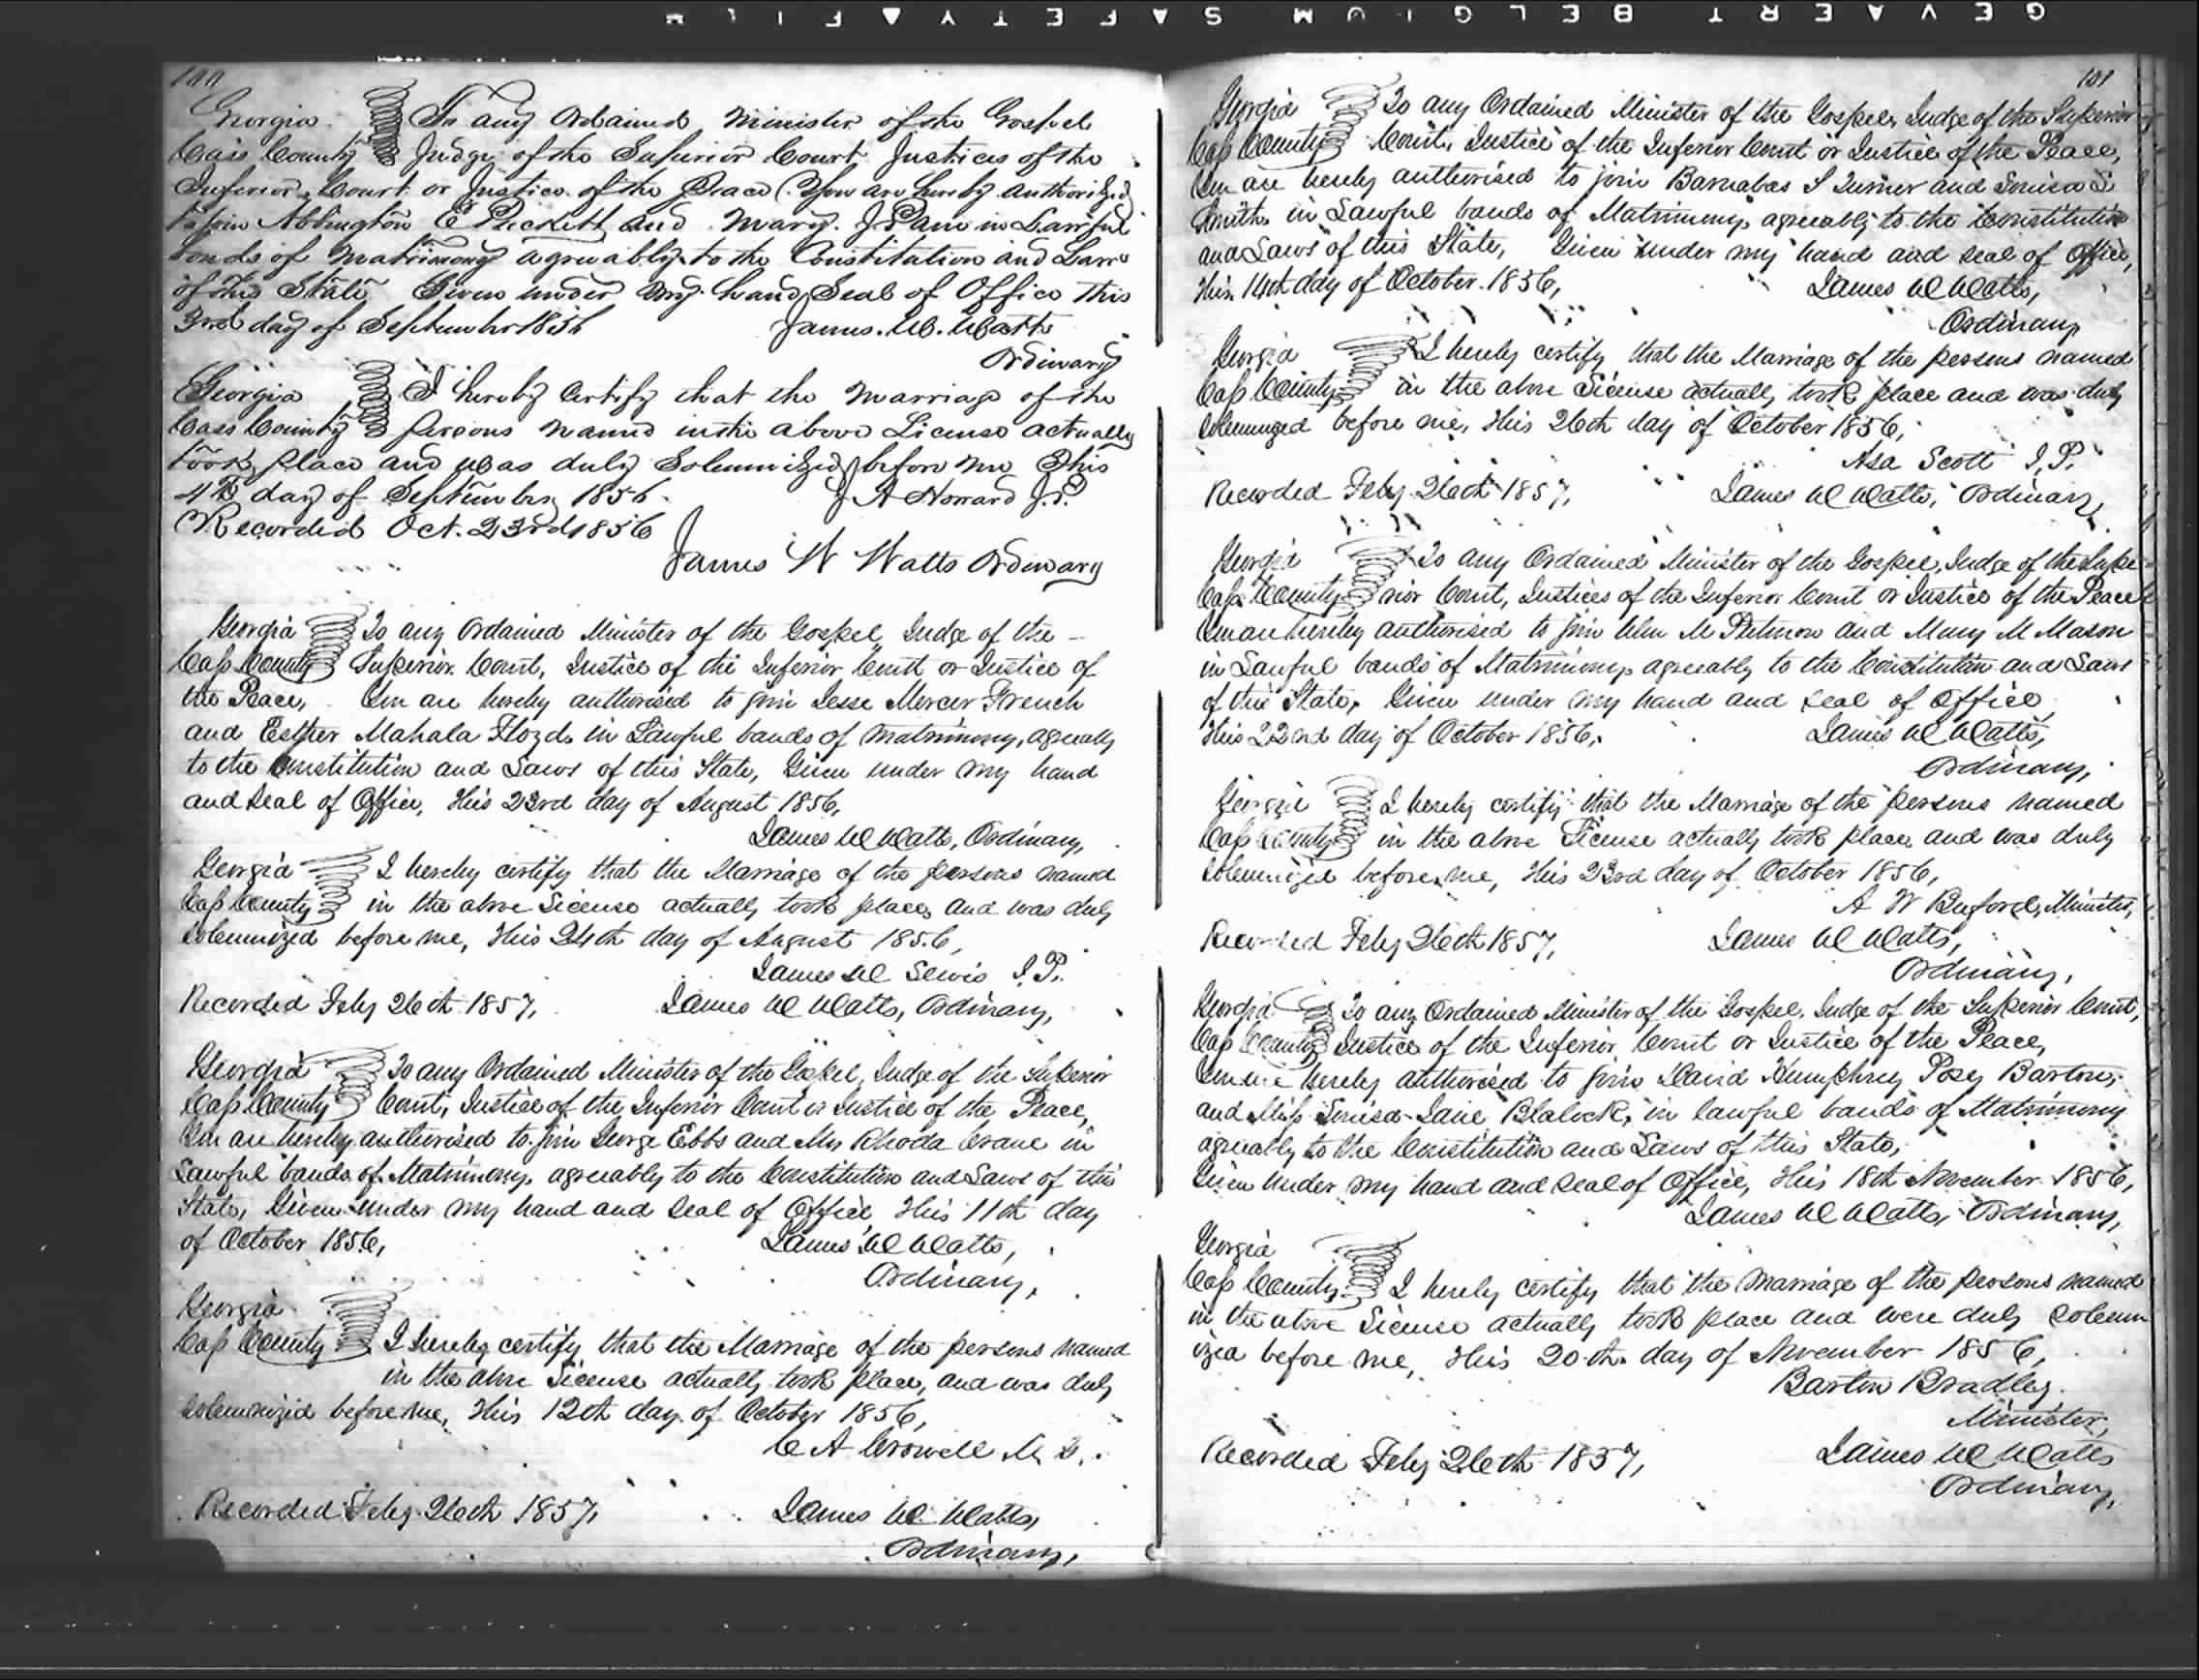 GEVAERT BELGIUM SAFETY FILM
100
Georgia To any Ordained Minister of the Gospel
Cass County Judge of the Superior Court Justices of the
Inferior Court or Justice of the Peace (You are hereby authorized
to join Abbington E Puckett and Mary J in Lawful
bonds of Matrimony agreeably to the Constitution and Laws
of this State Given under my hand, Seal of Office this
3rd day of September 1856 James. W. Watts
Ordinary
Georgia I hereby Certify that the Marriage of the
Cass County persons named in the above License actually
took place and was duly Solemnized before me This
4th day of September 1856. J A Howard J.P.
Recorded Oct. 23rd 1856
James W Watts Ordinary
Georgia To any Ordained Minister of the Gospel, Judge of the
Cass County Superior Court, Justice of the Inferior Court or Justice of
the Peace, You are hereby authorised to join Jesse Mercer French
and Esther Mahala Floyd, in Lawful bands of Matrimony, agreeably
to the Constitution and Laws of this State, Given under my hand
and Seal of Office, this 23rd day of August 1856,
James W Watts, Ordinary,
Georgia I hereby certify that the Marriage of the persons named
Cass County in the above License actually took place, and was duly
solemnized before me, this 24th day of August 1856,
James W Lewis J.P.
Recorded Feby 26th 1857, James W Watts, Ordinary,
Georgia To any Ordained Minister of the Gospel, Judge of the Superior
Cass County Court, Justice of the Inferior Court or Justice of the Peace,
You are hereby authorised to join George Ebbs and Mrs Rhoda Crane in
Lawful bands of Matrimony, agreeably to the Constitution and Laws of this
State, Given under my hand and Seal of Office this 11th day
of October 1856, James W Watts,
Ordinary,
Georgia
Cass County I hereby certify that the Marriage of the persons named
in the above License actually took place, and was duly
solemnized before me, this 12th day of October 1856,
C A Crowell M G.
Recorded Feby 26th 1857, James W Watts,
Ordinary,
101
Georgia To any Ordained Minister of the Gospel, Judge of the Superior
Cass County Court, Justice of the Inferior Court or Justice of the Peace,
You are hereby authorised to join Barnabas S Turner and Louisa S
Smith, in Lawful bands of Matrimony, agreeably to the Constitution
and Laws of this State, Given under my hand and seal of Office,
this 14th day of October 1856, James W Watts,
Ordinary
Georgia I hereby certify that the Marriage of the persons named
Cass County in the above License actually took place and was duly
solemnized before me, this 26th day of October 1856,
Asa Scott J.P.
Recorded Feby 26th 1857, James W Watts, Ordinary,
Georgia To any Ordained Minister of the Gospel, Judge of the Supe
Cass County rior Court, Justices of the Inferior Court or Justice of the Peace
You are hereby authorised to join Wm M and Mary M Mason
in Lawful bands of Matrimony, agreeably to the Constitution and Laws
of this State, Given under my hand and seal of Office
this 22nd day of October 1856, James W Watts,
Ordinary,
Georgia I hereby certify that the Marriage of the persons named
Cass County in the above License actually took place, and was duly
solemnized before me, this 23rd day of October 1856,
A W Buford, Minister,
Recorded Feby 26th 1857, James W Watts,
Ordinary,
Georgia To any Ordained Minister of the Gospel, Judge of the Superior Court,
Cass County Justice of the Inferior Court or Justice of the Peace,
You are hereby authorised to join David Humphrey Posey Barton,
and Miss Louisa Jane Blalock, in lawful bands of Matrimony
agreeably to the Constitution and Laws of this State,
Given under my hand and seal of Office, this 18th November 1856,
James W Watts, Ordinary,
Georgia
Cass County I hereby certify that the Marriage of the persons named
in the above License actually took place and were duly solemn
ized before me, this 20th day of November 1856,
Barton Bradley.
Minister,
Recorded Feby 26th 1857, James W Watts
Ordinary,